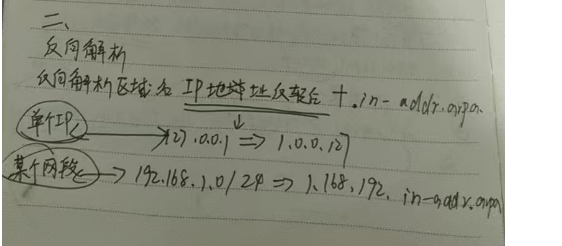 二、
反向解析
反向解析区域名 IP地址反转后 + .in-addr.arpa.
单个IP → 127.0.0.1 ⇒ 1.0.0.127
某个网段 → 192.168.1.0/24 ⇒ 1.168.192. in-addr.arpa